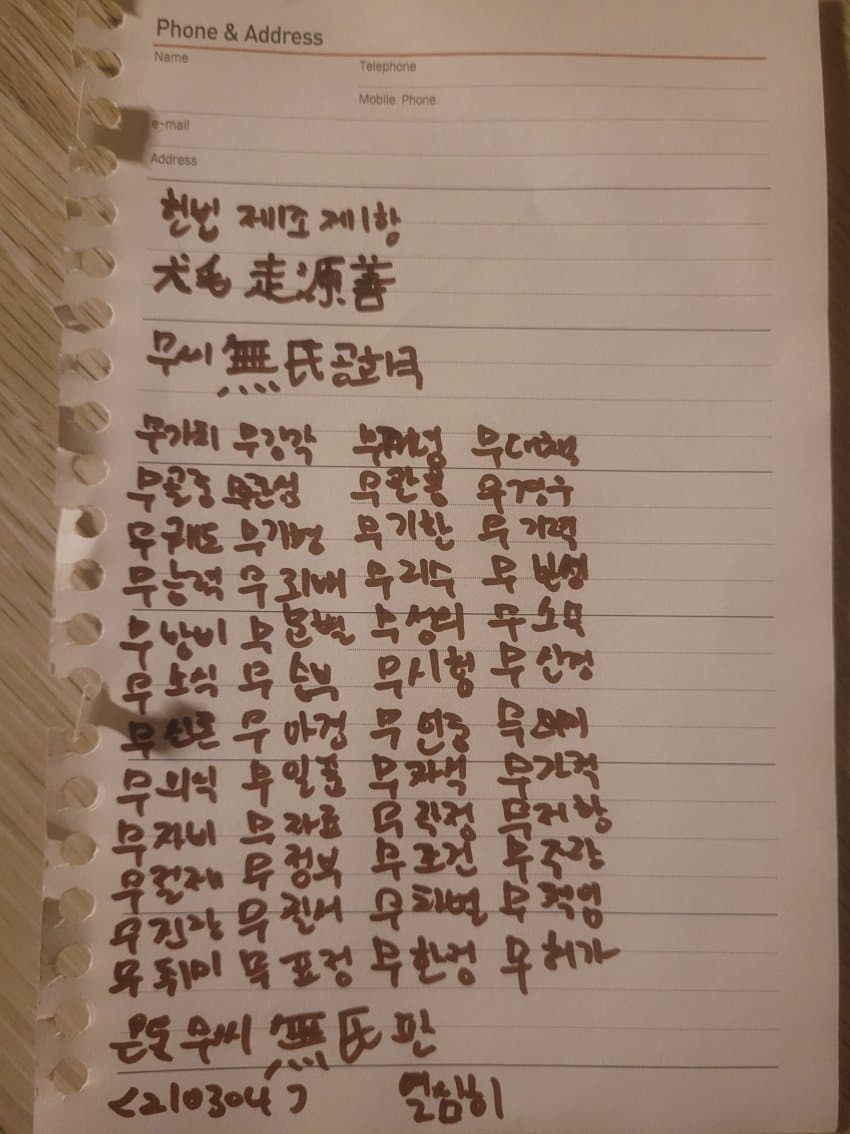 Phone & Address
Name
Telephone
Mobile Phone
e-mail
Address
헌법 제1조 제1항
犬毛 走源善
무씨 無氏 공화국
무가치 무감각 무대책
무골충 무관심 무관용 무경우
무궤도 무기명 무기한 무기력
무능력 무뢰배 무리수 무반성
무방비 무분별 무성의 무소속
무소식 무승부 무시험 무신경
무신론 무언중 무의미
무의식 무일푼 무자격
무자비 무작정 무저항
무절제 무정부 무조건 무중량
무진장 무질서 무책임
무취미 무표정 무한정 무허가
은둔 무씨 無氏 판
<210304> 열심히